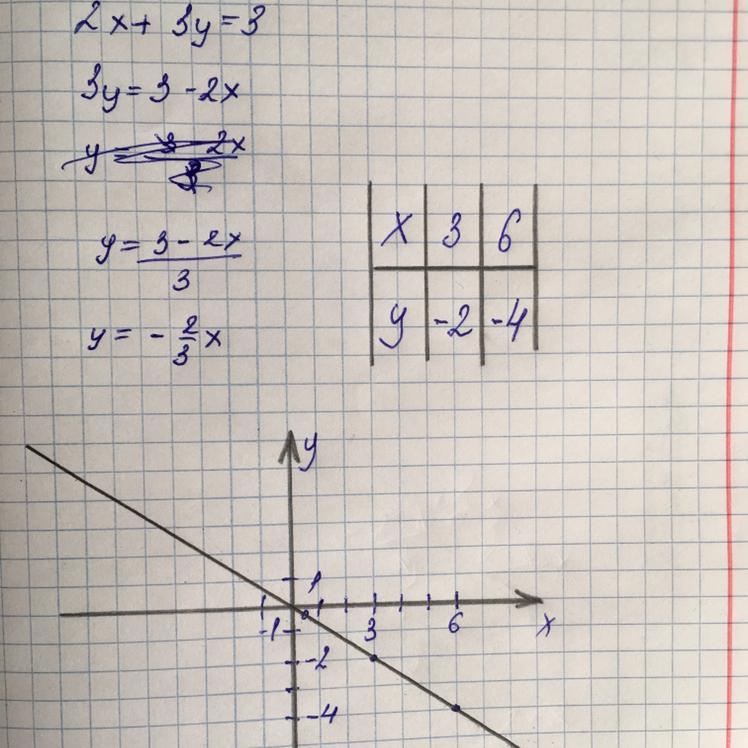 2x + 3y = 3
3y = 3 - 2x
y = (3 - 2x)/3
y = -2/3 x
x 3 6
y -2 -4
y
1
1
-1
3
6
x
-2
-4